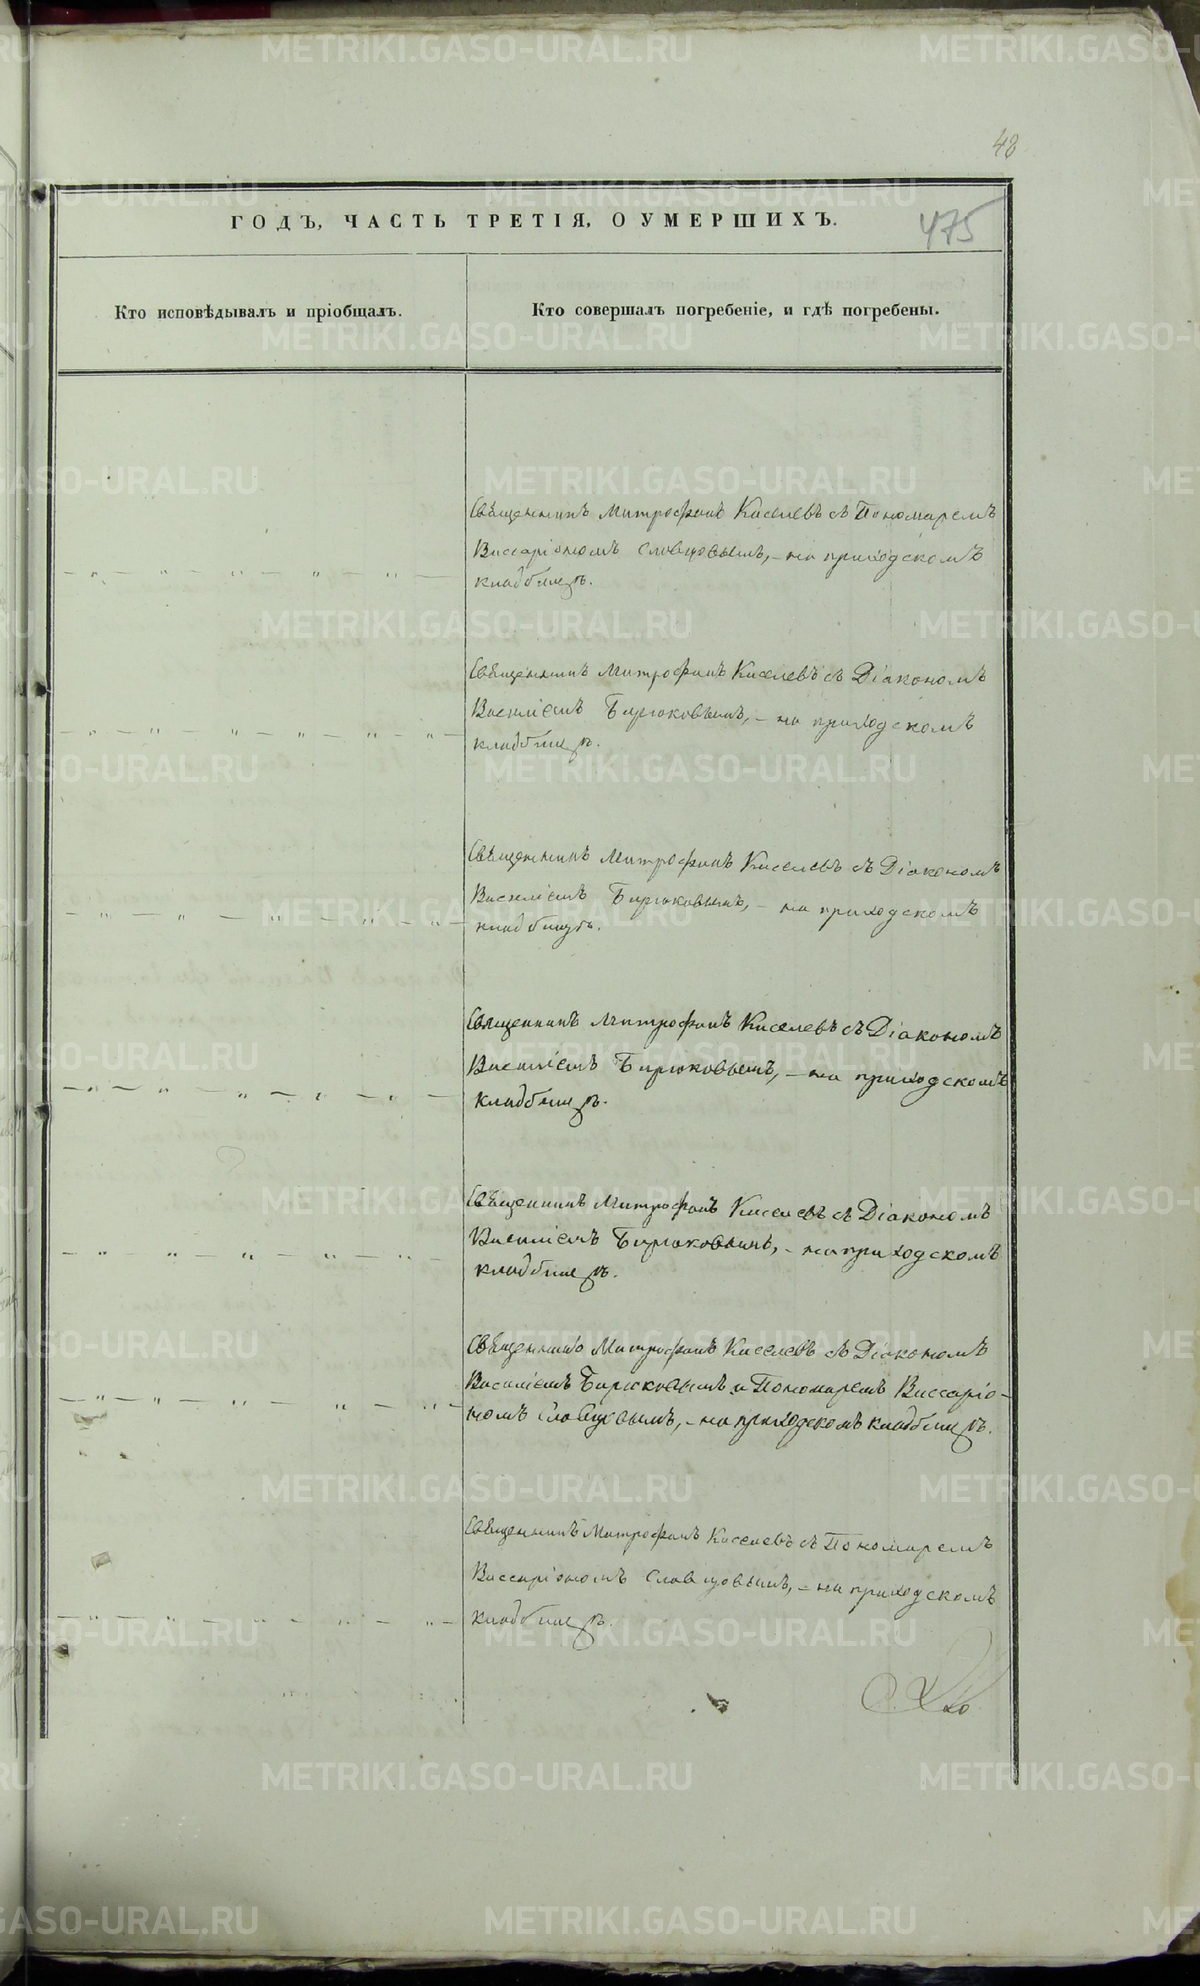 48
ГОДЪ, ЧАСТЬ ТРЕТІЯ, О УМЕРШИХЪ.
475
Кто исповѣдывалъ и пріобщалъ.
Кто совершалъ погребеніе, и гдѣ погребены.
Священникъ Митрофанъ Киселевъ съ Пономаремъ
Виссаріономъ Словцовымъ, – на приходскомъ
кладбищѣ.
Священникъ Митрофанъ Киселевъ съ Діакономъ
Василіемъ Бирюковымъ, – на приходскомъ
кладбищѣ.
Священникъ Митрофанъ Киселевъ съ Діакономъ
Василіемъ Бирюковымъ, – на приходскомъ
кладбищѣ.
Священникъ Митрофанъ Киселевъ съ Діакономъ
Василіемъ Бирюковымъ, – на приходскомъ
кладбищѣ.
Священникъ Митрофанъ Киселевъ съ Діакономъ
Василіемъ Бирюковымъ, – на приходскомъ
кладбищѣ.
Священникъ Митрофанъ Киселевъ съ Діакономъ
Василіемъ Бирюковымъ и Пономаремъ Виссаріо-
номъ Словцовымъ, – на приходскомъ кладбищѣ.
Священникъ Митрофанъ Киселевъ съ Пономаремъ
Виссаріономъ Словцовымъ, – на приходскомъ
кладбищѣ.
METRIKI.GASO-URAL.RU